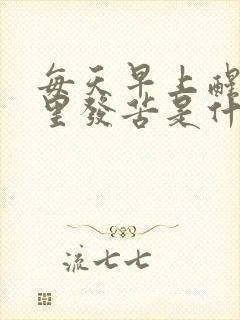 每天早上醒
里發苦是什
流七七